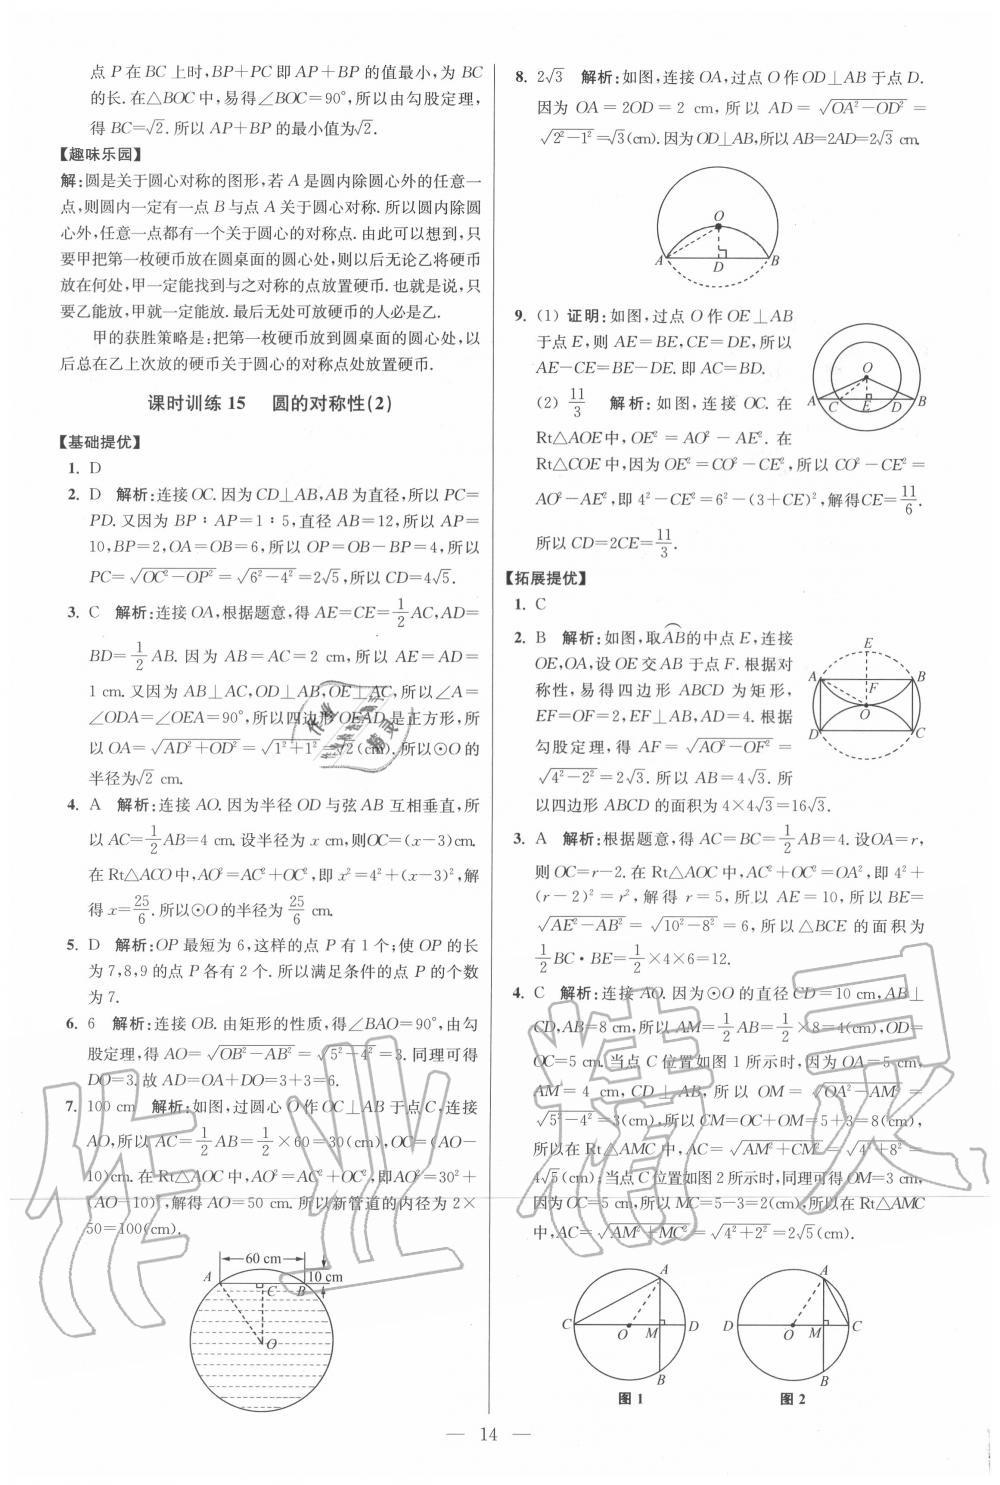 点 P 在 BC 上时,BP+PC 即 AP+BP 的值最小,为 BC
的长. 在△BOC 中,易得∠BOC=90°,所以由勾股定理,
得 BC=√2. 所以 AP+BP 的最小值为√2.
【趣味乐园】
解:圆是关于圆心对称的图形,若 A 是圆内除圆心外的任意一
点,则圆内一定有一点 B 与点 A 关于圆心对称. 所以圆内除圆
心外,任意一点都有一个关于圆心的对称点. 由此可以想到,只
要甲把第一枚硬币放在圆桌面的圆心处,则以后无论乙将硬币
放在何处,甲一定能找到与之对称的点放置硬币. 也就是说,只
要乙能放,甲就一定能放. 最后无处可放硬币的人必是乙.
甲的获胜策略是:把第一枚硬币放到圆桌面的圆心处,以
后总在乙上次放的硬币关于圆心的对称点处放置硬币.
课时训练 15 圆的对称性(2)
【基础提优】
1. D
2. D 解析:连接 OC. 因为 CD⊥AB,AB 为直径,所以 PC=
PD. 又因为 BP∶AP=1∶5,直径 AB=12,所以 AP=
10,BP=2,OA=OB=6,所以 OP=OB-BP=4,所以
PC=√(OC²-OP²)=√(6²-4²)=2√5,所以 CD=4√5.
3. C 解析:连接 OA,根据题意,得 AE=CE=1/2 AC,AD=
BD=1/2 AB. 因为 AB=AC=2 cm,所以 AE=AD=
1 cm. 又因为 AB⊥AC,OD⊥AB,OE⊥AC,所以∠A=
∠ODA=∠OEA=90°,所以四边形 OEAD 是正方形,所
以 OA=√(AD²+OD²)=√(1²+1²)=√2(cm). 所以⊙O 的
半径为√2 cm.
4. A 解析:连接 AO. 因为半径 OD 与弦 AB 互相垂直,所
以 AC=1/2 AB=4 cm. 设半径为 x cm,则OC=(x-3)cm.
在 Rt△ACO 中,AO²=AC²+OC²,即 x²=4²+(x-3)²,解
得 x=25/6. 所以⊙O 的半径为 25/6 cm.
5. D 解析:OP 最短为 6,这样的点 P 有 1 个;使 OP 的长
为 7,8,9 的点 P 各有 2 个. 所以满足条件的点 P 的个数
为 7.
6. 6 解析:连接 OB. 由矩形的性质,得∠BAO=90°,由勾
股定理,得 AO=√(OB²-AB²)=√(5²-4²)=3. 同理可得
DO=3. 故 AD=OA+DO=3+3=6.
7. 100 cm 解析:如图,过圆心 O 作 OC⊥AB 于点 C,连接
AO,所以 AC=1/2 AB=1/2×60=30(cm),OC=(AO-
10)cm. 在 Rt△AOC 中,AO²=AC²+OC²,即AO²=30²+
(AO-10)²,解得 AO=50 cm. 所以新管道的内径为 2×
50=100(cm).
60 cm
A C B 10 cm
O
8. 2√3 解析:如图,连接 OA,过点 O 作 OD⊥AB 于点 D.
因为 OA=2OD=2 cm,所以 AD=√(OA²-OD²)=
√(2²-1²)=√3(cm). 因为 OD⊥AB,所以 AB=2AD=2√3 cm.
O
A D B
9. (1) 证明:如图,过点 O 作 OE⊥AB
于点 E,则 AE=BE,CE=DE,所以
AE-CE=BE-DE. 即 AC=BD.
(2) 11/3 解析:如图,连接 OC. 在
Rt△AOE中,OE²=AO²-AE². 在
Rt△COE 中,因为 OE²=CO²-CE²,所以 CO²-CE²=
AO²-AE²,即 4²-CE²=6²-(3+CE)²,解得CE=11/6.
所以 CD=2CE=11/3.
O
A C E D B
【拓展提优】
1. C
2. B 解析:如图,取AB的中点 E,连接
OE,OA,设 OE 交 AB 于点 F. 根据对
称性,易得四边形 ABCD 为矩形,
EF=OF=2,EF⊥AB,AD=4. 根据
勾股定理,得 AF=√(AO²-OF²)=
√(4²-2²)=2√3. 所以 AB=4√3. 所
以四边形 ABCD 的面积为 4×4√3=16√3.
E
A F B
O
D C
3. A 解析:根据题意,得 AC=BC=1/2 AB=4. 设OA=r,
则 OC=r-2. 在 Rt△AOC 中,AC²+OC²=OA²,即 4²+
(r-2)²=r²,解得 r=5,所以 AE=10,所以 BE=
√(AE²-AB²)=√(10²-8²)=6,所以△BCE 的面积为
1/2 BC·BE=1/2×4×6=12.
4. C 解析:连接 AO. 因为⊙O 的直径 CD=10 cm,AB⊥
CD,AB=8 cm,所以 AM=1/2 AB=1/2×8=4(cm),OD=
OC=5 cm. 当点 C 位置如图 1 所示时,因为 OA=5 cm,
AM=4 cm,CD⊥AB,所以 OM=√(OA²-AM²)=
√(5²-4²)=3(cm),所以 CM=OC+OM=5+3=8(cm),
所以在 Rt△AMC 中,AC=√(AM²+CM²)=√(4²+8²)=
4√5(cm);当点 C 位置如图 2 所示时,同理可得 OM=3 cm,
因为 OC=5 cm,所以 MC=5-3=2(cm),所以在 Rt△AMC
中,AC=√(AM²+MC²)=√(4²+2²)=2√5(cm).
A
C O M D
B
图 1
A
D O M C
B
图 2
— 14 —
作业精灵